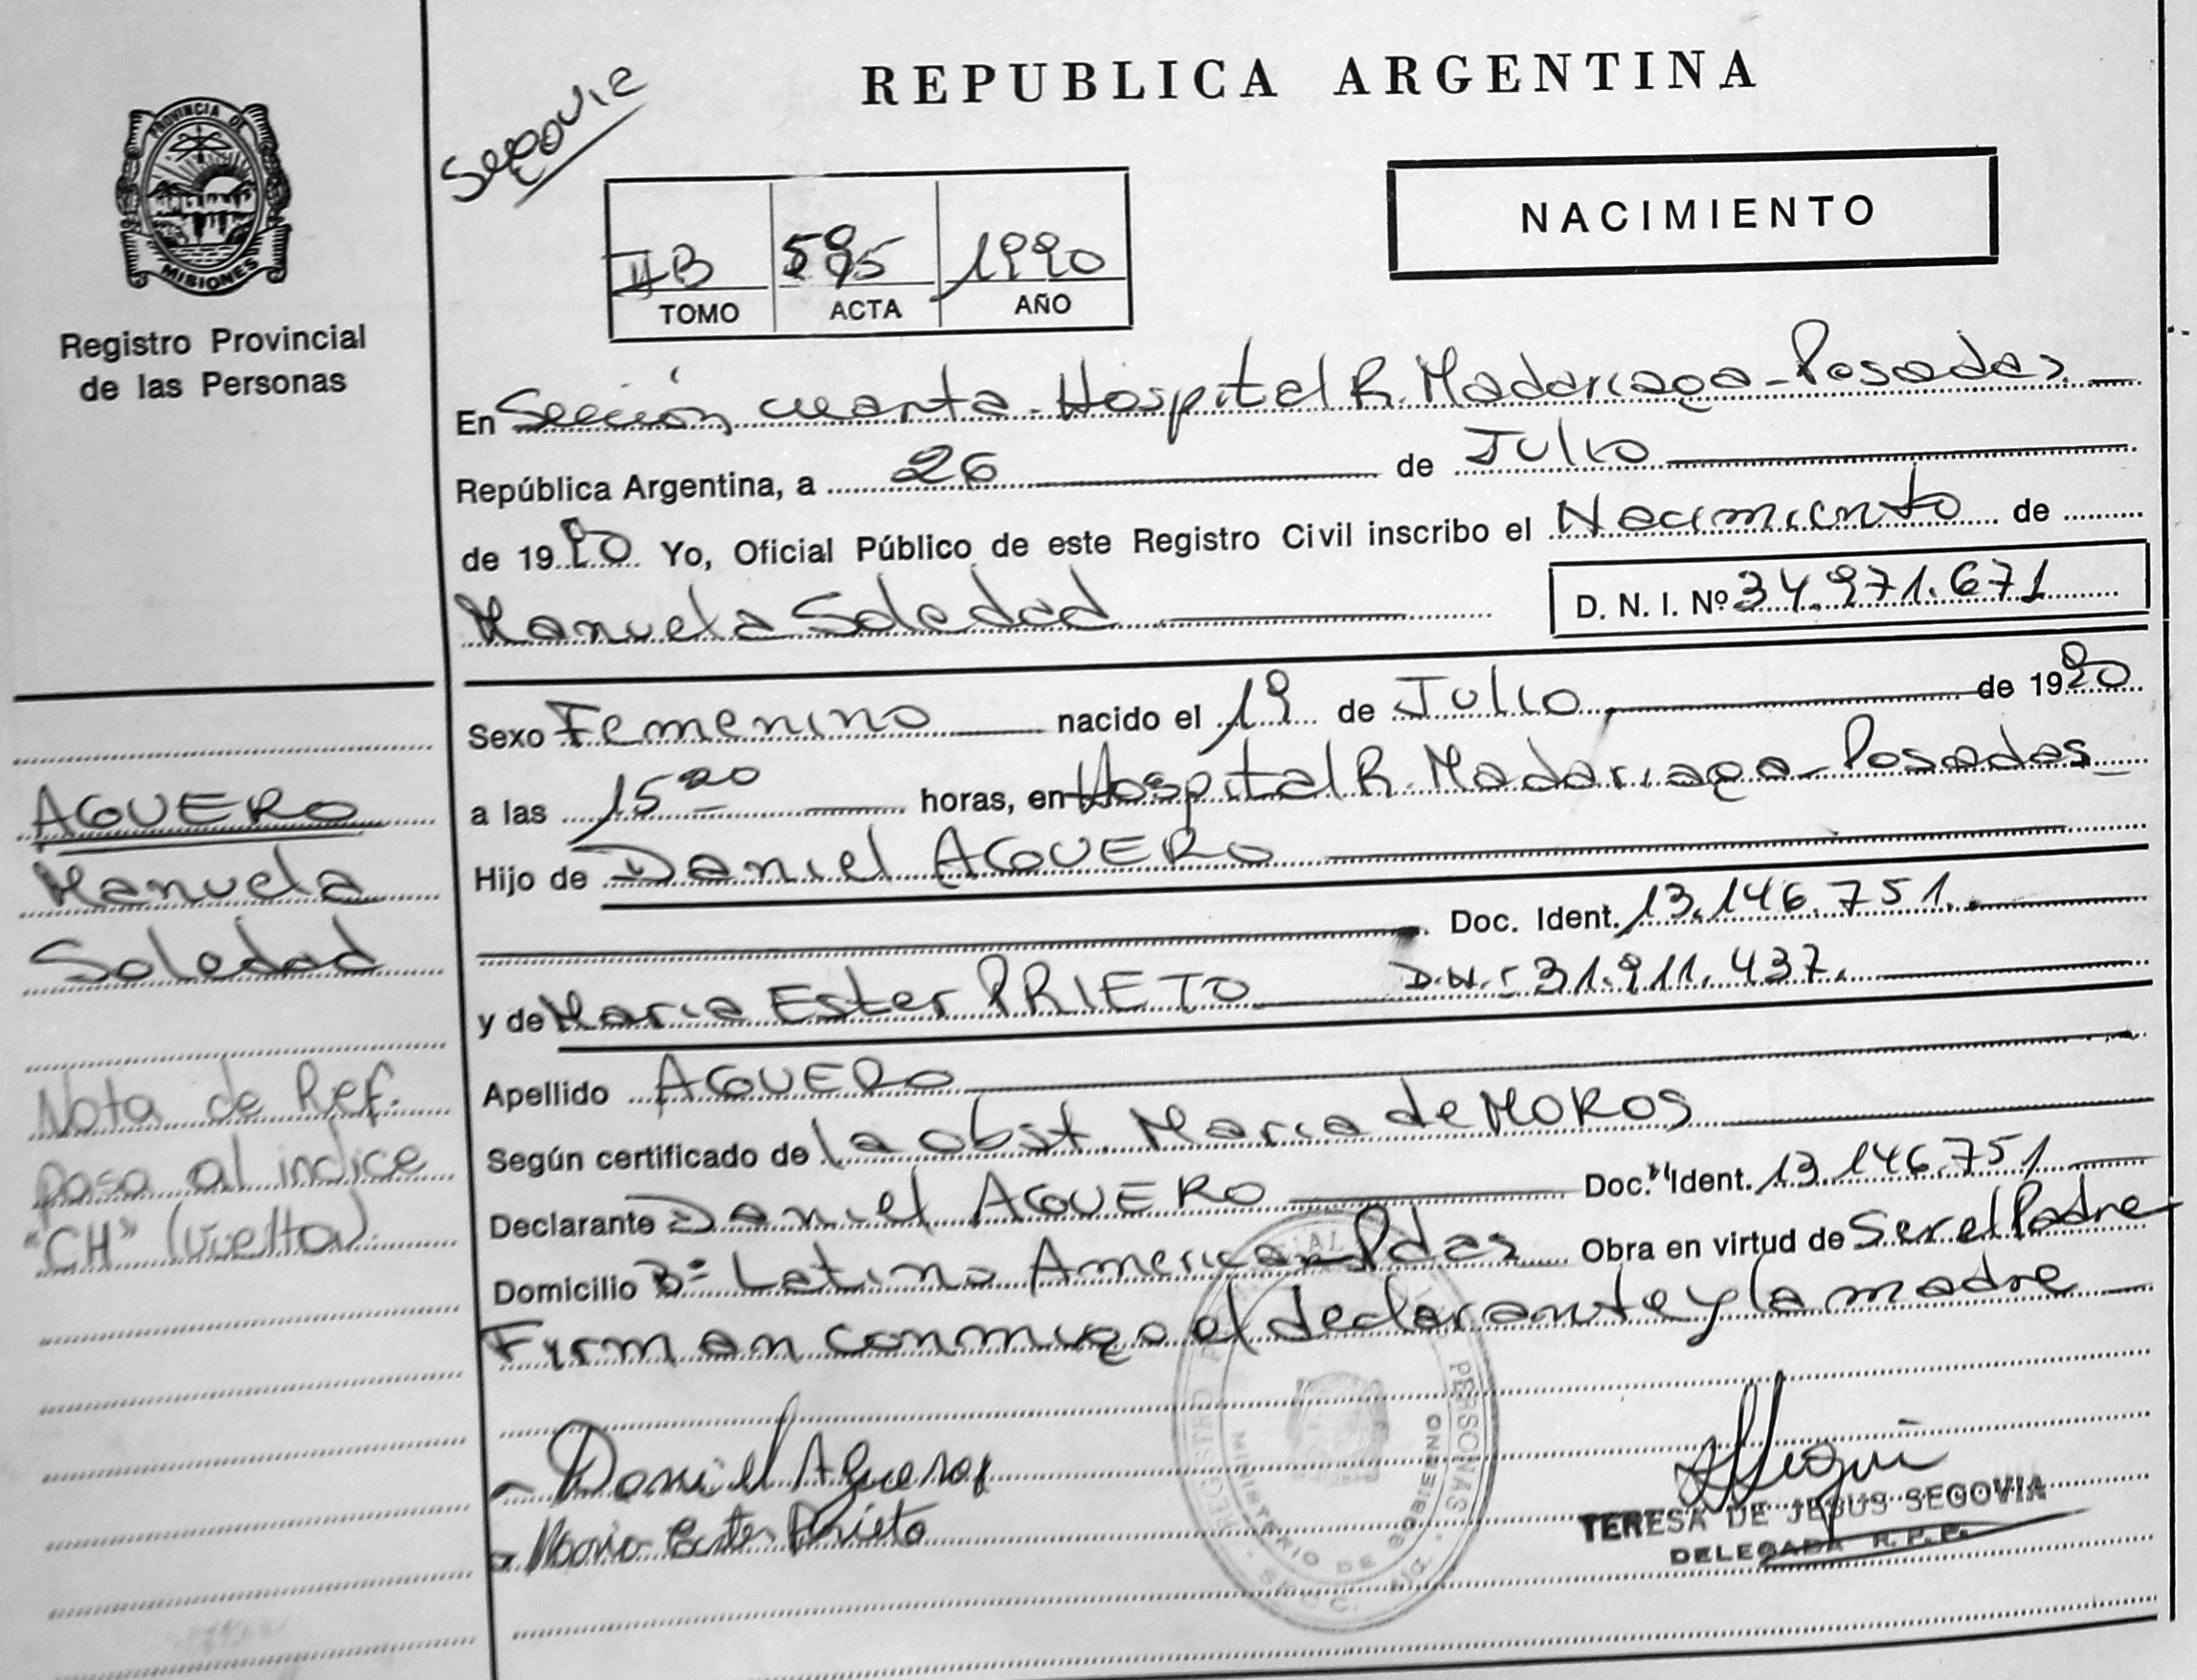 PROVINCIA DE
MISIONES
Registro Provincial
de las Personas
Segovia
REPUBLICA ARGENTINA
NACIMIENTO
IIB 595 1990
TOMO ACTA AÑO
En Sección cuarta - Hospital R. Madariaga - Posadas
República Argentina, a 26 de Julio
de 1990 Yo, Oficial Público de este Registro Civil inscribo el Nacimiento de
Manuela Soledad D. N. I. Nº 34.971.671
Sexo Femenino nacido el 19 de Julio, de 1990
a las 15 20 horas, en Hospital R. Madariaga - Posadas
Hijo de Daniel AGUERO
Doc. Ident. 13.146.751.
y de Maria Ester PRIETO D.N.I 31.911.437.
Apellido AGUERO
Según certificado de la obst. Maria de MOROS
Declarante Daniel AGUERO Doc. Ident. 13.146.751
Domicilio Bº Latino American Pdas Obra en virtud de Ser el Padre
Firman conmigo el declarante y la madre
AGUERO
Manuela
Soledad
Nota de Ref.
pasa al indice
"CH" (vuelta)
Daniel Aguero
Maria Ester Prieto
REGISTRO PERSONAS
MINISTERIO DE GOBIERNO
TERESA DE JESUS SEGOVIA
DELEGADA R. P. P.